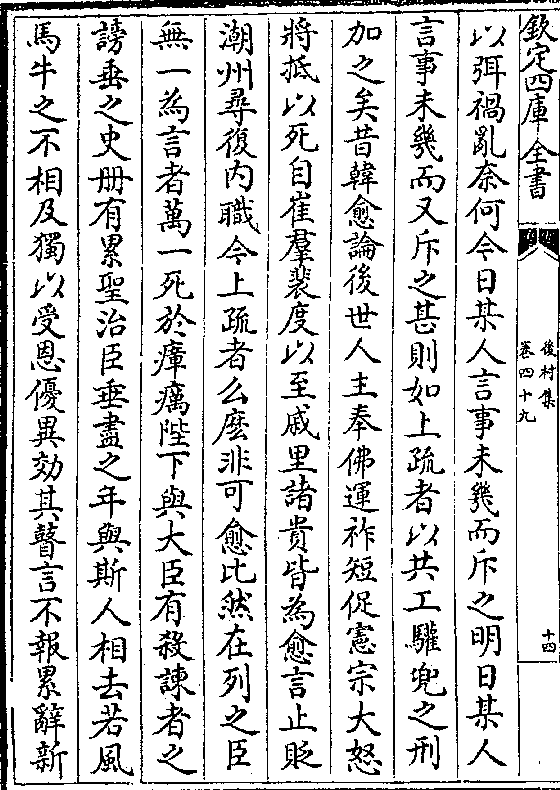 欽定四庫全書
後村集
卷四十九
十四
以弭禍亂奈何今日某人言事未幾而斥之明日某人
言事未幾而又斥之甚則如上疏者以共工驩兜之刑
加之矣昔韓愈論後世人主奉佛運祚短促憲宗大怒
將抵以死自崔羣裴度以至戚里諸貴皆為愈言止貶
潮州尋復内職今上疏者么麽非可愈比然在列之臣
無一為言者萬一死於瘴癘陛下與大臣有殺諫者之
謗垂之史册有累聖治臣垂盡之年與斯人相去若風
馬牛之不相及獨以受恩優異効其瞽言不報累辭新